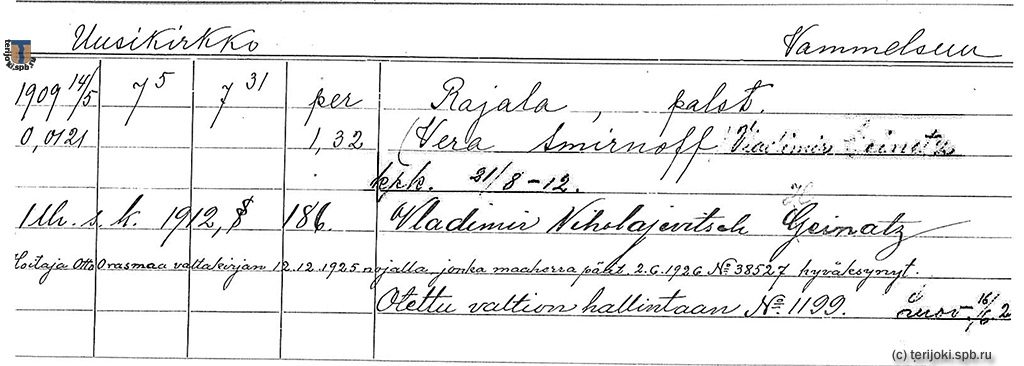 Uusikirkko Vammelsuu
terijoki.spb.ru
1909 14/5 7 5 7 31 per Rajala, palst.
0,0121 1,32 (Vera Smirnoff Vladimir
krk. 21/8-12.
Uk. s. k. 1912, § 186. Vladimir Nikolajevitsch Geinatz
Otto Orasmaa valtakirjan 12.12.1925 nojalla, jonka maaherra päät. 2.6.1926 No 38527 hyväksynyt.
Otettu valtion hallintaan No 1199.
(c) terijoki.spb.ru